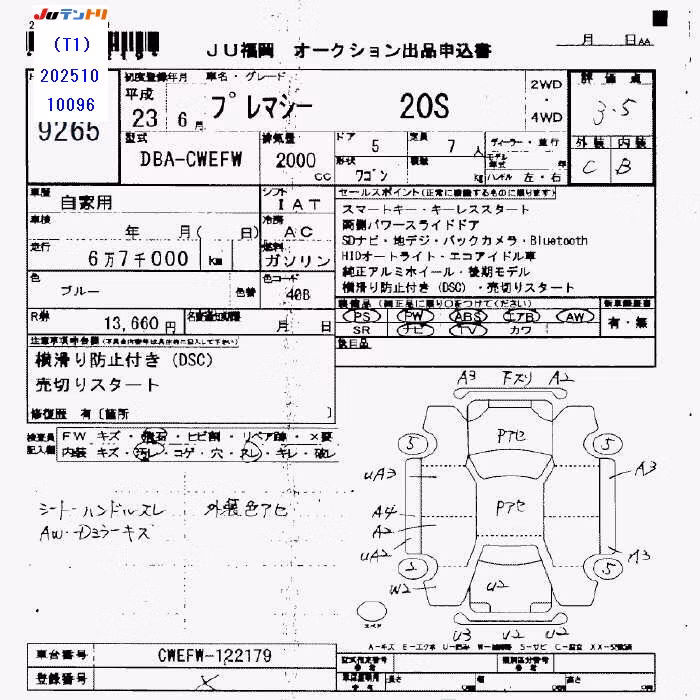 JUテントリ
(T1)
202510
10096
9265
JU福岡 オークション出品申込書
月 日 AA
初度登録年月 車名・グレード
平成
23 6月
プレマシー 20S
2WD
・
4WD
評価点
3.5
外装 内装
C B
型式 排気量 ドア 5 定員 7人
DBA-CWEFW 2000cc
形状 ワゴン kg
ハンドル 左・右
車歴 自家用
シフト IAT
車検 年 月( 日)
冷房 AC
走行 6万7千000 km
燃料 ガソリン
色 ブルー 色替
色コード 40B
R券 13,660円
月 日
セールスポイント(正常に機能するものに限ります)
スマートキー・キーレススタート
両側パワースライドドア
SDナビ・地デジ・バックカメラ・Bluetooth
HIDオートライト・エコアイドル車
純正アルミホイール・後期モデル
横滑り防止付き(DSC)・売切りスタート
装備品(純正品に限り○をつけてください)
PS PW ABS エアB AW
SR ナビ TV カワ
有・無
後日品
注意事項申告欄
横滑り防止付き(DSC)
売切りスタート
修復歴 有〔箇所 〕
検査員
記入欄
FW キズ・飛石・ヒビ割・リペア跡・×要
内装 キズ・汚レ・コゲ・穴・スレ・キレ・破レ
シート・ハンドルスレ 外装色アセ
AW・Dミラーキズ
A3 下ズリ A2
Pアセ
5 5
uA3 A3
A4 Pアセ
A2
uA2 A3
2 5
W2 U2
スペア
U3 U2 U2
A-キズ E-エクボ U-凹み S-サビ C-腐食 XX-交換済
車台番号 CWEFW-122179
登録番号 ×
型式指定番号 類別区分番号
長さ 幅 高さ